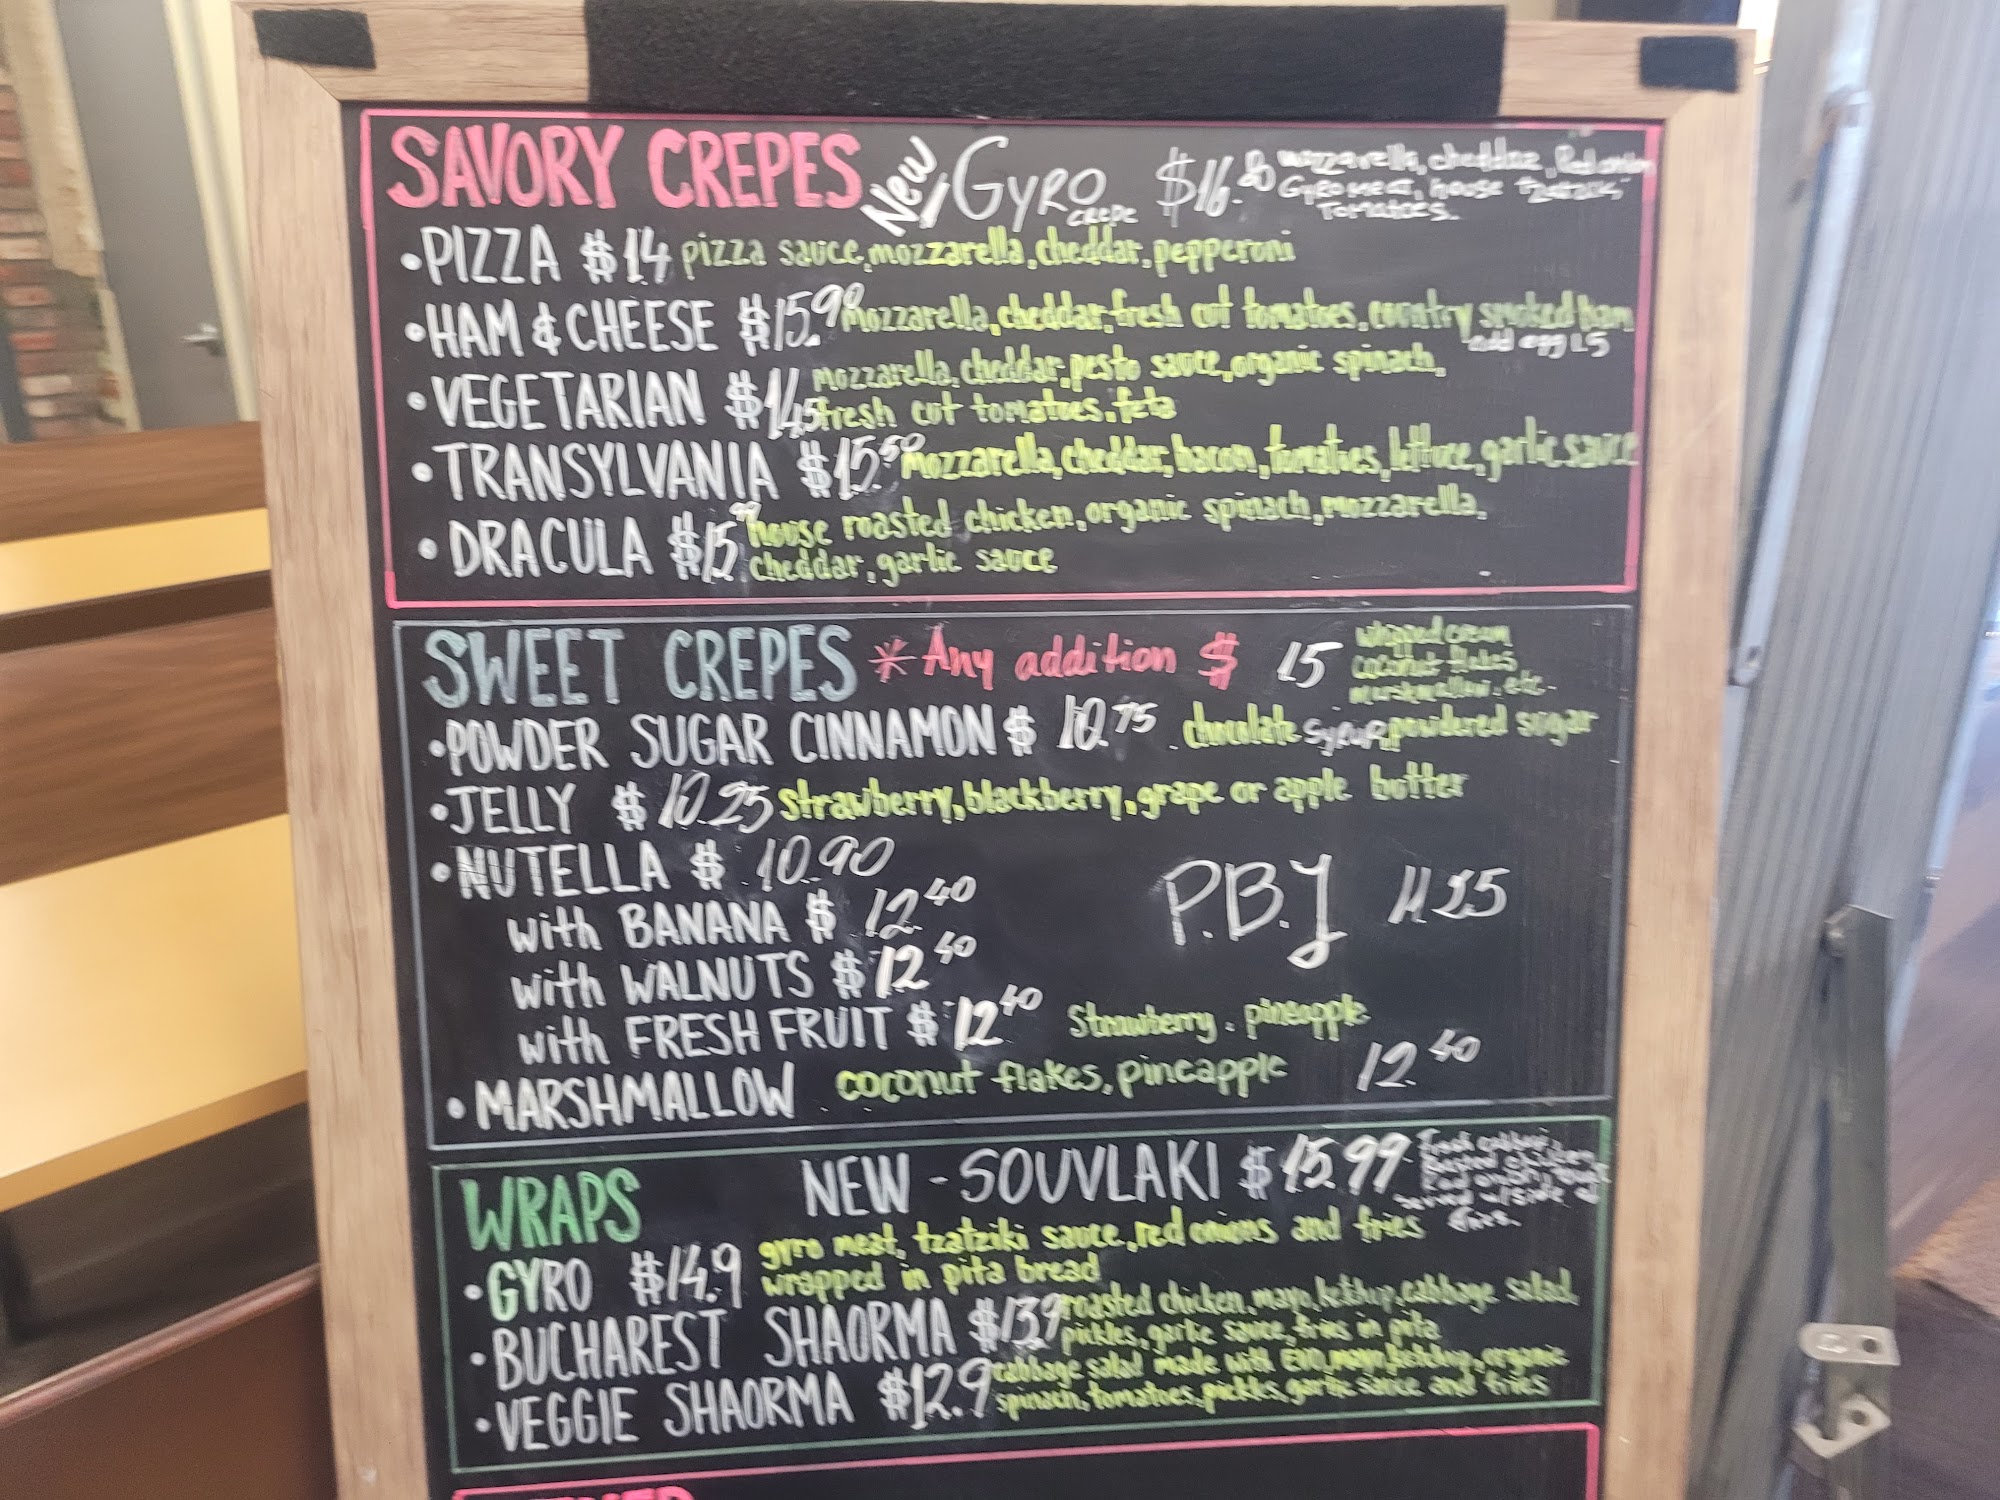 SAVORY CREPES New GYRO CREPE $16.80 mozzarella, cheddar, Red onion
Gyro meat, house "Tzatziki"
Tomatoes.
•PIZZA $14 pizza sauce, mozzarella, cheddar, pepperoni
•HAM & CHEESE $15.90 mozzarella, cheddar, fresh cut tomatoes, country smoked ham
add egg 1.5
•VEGETARIAN mozzarella, cheddar, pesto sauce, organic spinach,
fresh cut tomatoes, feta
•TRANSYLVANIA $15.50 mozzarella, cheddar, bacon, tomatoes, lettuce, garlic sauce
•DRACULA $15.99 house roasted chicken, organic spinach, mozzarella,
cheddar, garlic sauce
SWEET CREPES *Any addition $ 15 whipped cream
coconut flakes
marshmallow, etc.
•POWDER SUGAR CINNAMON $ 10.75 chocolate syrup, powdered sugar
•JELLY $ 10.25 strawberry, blackberry, grape or apple butter
•NUTELLA $ 10.90
with BANANA $ 12.40
P.B.J 11.25
with WALNUTS $ 12.40
with FRESH FRUIT $ 12.40 Strawberry, pineapple
•MARSHMALLOW coconut flakes, pineapple 12.40
WRAPS NEW - SOUVLAKI $15.99 Fresh cabbage,
Roasted chicken
Red onion
served w/side of
fries.
•GYRO $14.9 gyro meat, tzatziki sauce, red onions and fries
wrapped in pita bread
•BUCHAREST SHAORMA $13.9 roasted chicken, mayo, ketchup, cabbage salad,
pickles, garlic sauce, fries in pita
•VEGGIE SHAORMA $12.9 cabbage salad made with EVO, mayo, ketchup, organic
spinach, tomatoes, pickles, garlic sauce and fries